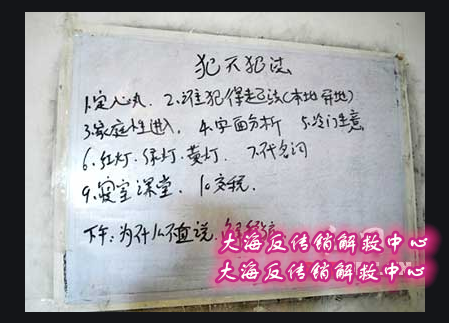 犯不犯法
1.定心丸. 2.谁犯保走云法(本地 异地)
3.家庭性进入. 4.字面分析 5.冷门生意
6.红灯.绿灯.黄灯. 7.代名词
9.寝室课堂. 10.交税.
下午:为什么不直说
大海反传销解救中心
大海反传销解救中心